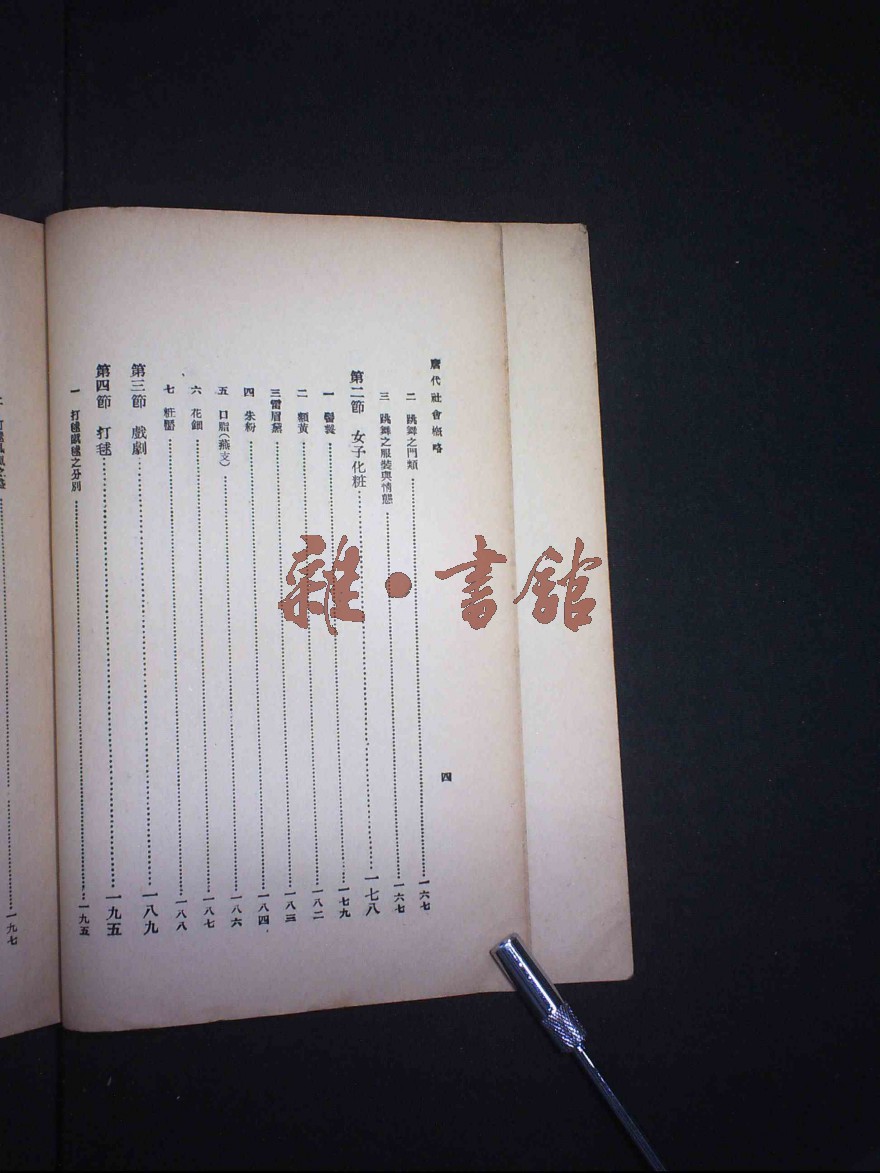 唐代社會概略
四
二 跳舞之門類 一六七
三 跳舞之服裝與情態 一六七
第二節 女子化粧 一七八
一 髻鬟 一七九
二 額黃 一八二
三 畫眉黛 一八三
四 朱粉 一八四
五 口脂(燕支) 一八六
六 花鈿 一八七
七 粧靨 一八八
第三節 戲劇 一八九
第四節 打毬 一九五
一 打毬蹴毬之分別 一九五
一九七
雜·書館